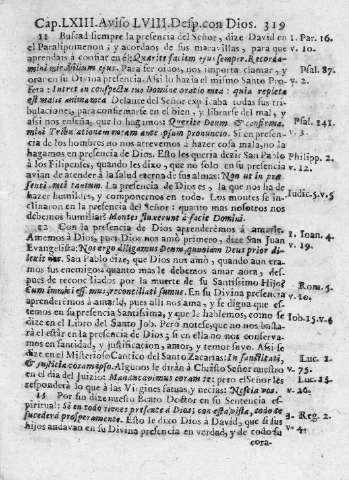 Cap. LXIII. Aviso LVIII. Desp. con Dios. 319
11 Buscad siempre la presencia del Señor, dize David en
el Paralipomenon; y acordaos de sus maravillas, para que
aprendais à confiar en èl: Quærite faciem ejus semper. Recorda-
mini mirabilium ejus. Para ser oidos, nos importa clamar, y
orar en su Divina presencia. Assi lo hazia el mismo Santo Pro-
feta: Intret in conspectu tuo Domine oratio mea: quia repleta
est malis anima mea. Delante del Señor explicaba todas sus tri-
bulaciones, para confortarse en el bien, y librarse del mal, y
assi nos enseña, que lo hagamos: Quærite Deum & confirma
mini Tribulationem meam ante ipsum pronuncio. Si en presen-
cia de los hombres no nos atrevemos à hazer cosa mala, no la
hagamos en presencia de Dios. Esto les queria dezir San Pablo
à los Filipenses, quando les dixo, que no solo en su presencia
avian de atender à la salud eterna de sus almas: Non ut in præ-
senti mei tantum. La presencia de Dios es, la que nos ha de
hazer humildes, y componernos en todo. Los montes se in-
clinaron en la presencia del Señor: quanto mas nosotros nos
debemos humillar? Montes fluxerunt à facie Domini.
12 Con la presencia de Dios aprenderèmos à amarle.
Amemos à Dios, pues Dios nos amò primero, dize San Juan
Evangelista: Nos ergo diligamus Deum, quoniam Deus prior di-
lexit nos. San Pablo dize, que Dios nos amò, quando aun era-
mos sus enemigos: quanto mas le debemos amar aora, des-
pues de reconciliados por la muerte de su Santissimo Hijo?
Cum inimici essemus, reconciliati sumus. En su Divina presencia
aprenderèmos à amarle, pues alli nos ama, y se digna que es-
temos en su presencia Santissima, y que le hablemos, como se
dize en el Libro del Santo Job. Pero notese, que no nos basta-
rà el estàr en la presencia de Dios; si en ella no nos conserva-
mos en santidad, y justificacion, amor, y temor suyo. Assi se
dize en el Misterioso Cantico del Santo Zacarias: In sanctitate,
& justitia coram ipso. Algunos le diràn à Christo Señor nuestro
en el dia del Juizio: Manducavimus coram te; pero el Señor les
responderà lo que à las Virgines fatuas, y necias: Nescio vos.
13 Por su dize nuestro Beato Doctor en su Sentencia es-
piritual: Si en todo tienes presente à Dios; con esta vista, todo te
sucederà prosperamente. Esto le dixo Dios à David, que si sus
hijos andavan en su Divina presencia en verdad, y de todo su
cora-
1. Par. 16.
v. 10.
Psal. 87.
v. 2.
Psal. 141.
v. 3.
Philipp. 2.
v. 12.
Iudic. 5. v. 5
1. Ioan. 4.
v. 19.
Rom. 5.
v. 10.
Iob. 15. v. 4
Luc. 1.
v. 75.
Luc. 13.
v. 26.
3. Reg. 2.
v. 4.